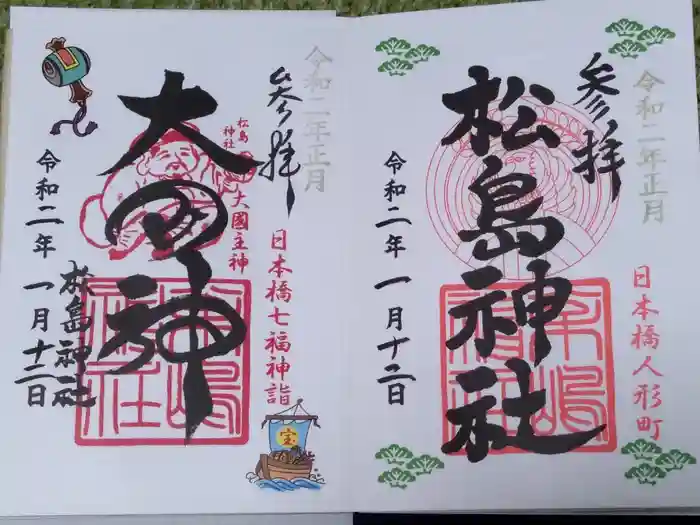 令和二年正月
参拝
松島神社
令和二年 一月十二日
日本橋人形町
令和二年正月
参拝
松島神社
大國主神
大国神
日本橋七福神詣
令和二年 一月十二日
松島神社
宝